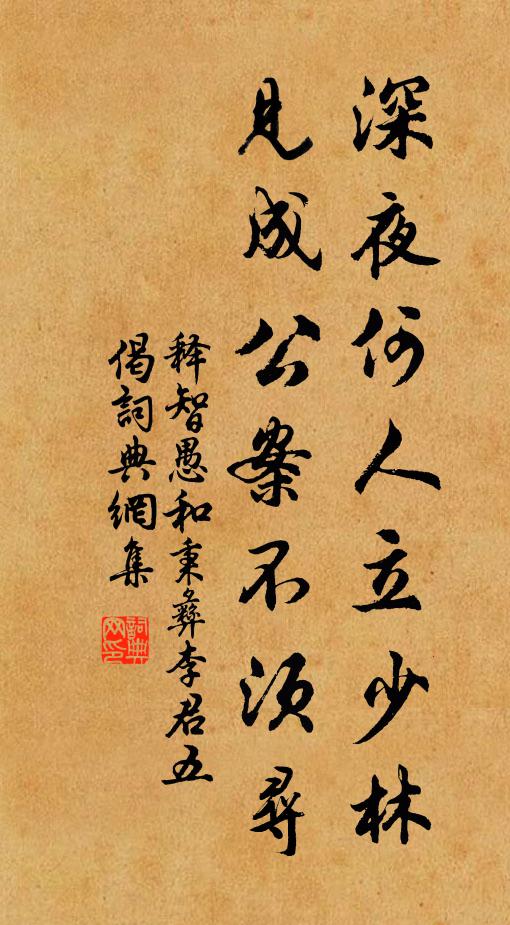 深夜何人立少林
見成公案不須尋
释智愚和秉彝李君五
偈詞典網集
詞典
网印